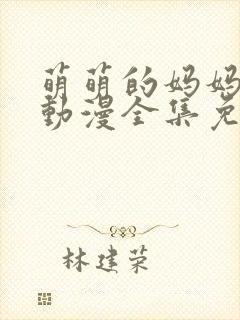 萌萌的妈妈
動漫全集免
林建荣